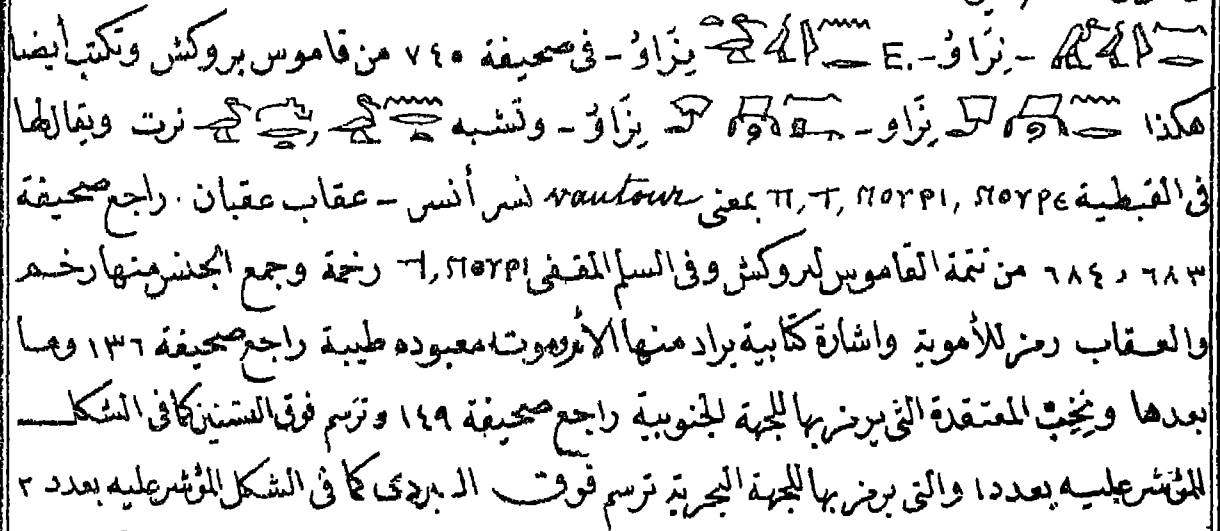 - نِرَاوُ - E. نِرَاوُ - فى صحيفة ٧٤٥ من قاموس بروكش وتكتب أيضا
هكذا نِرَاو - نِرَاوُ - وتشبه نرت ويقال لها
فى القبطية Π, Τ, ⲚⲞⲨⲢⲒ, ⲚⲞⲨⲢⲈ بمعنى vautour نسر أنسر - عقاب عقبان . راجع صحيفة
٦٨٣ و ٦٨٤ من تتمة القاموس لبروكش وفى السلم المقفى Ϯ, ⲚⲞⲨⲢⲒ رخمة وجمع الجنس منها رخم
والعقاب رمز للأموية واشارة كتابية يراد منها الأم وموت معبوده طيبة راجع صحيفة ١٣٦ وما
بعدها ونخب المعتقدة التى يرمز بها للجهة الجنوبية راجع صحيفة ١٤٩ وترسم فوق كما فى الشكل
المؤشر عليه بعدد ١ والتى يرمز بها للجهة البحرية ترسم فوق البردى كما فى الشكل المؤشر عليه بعدد ٢